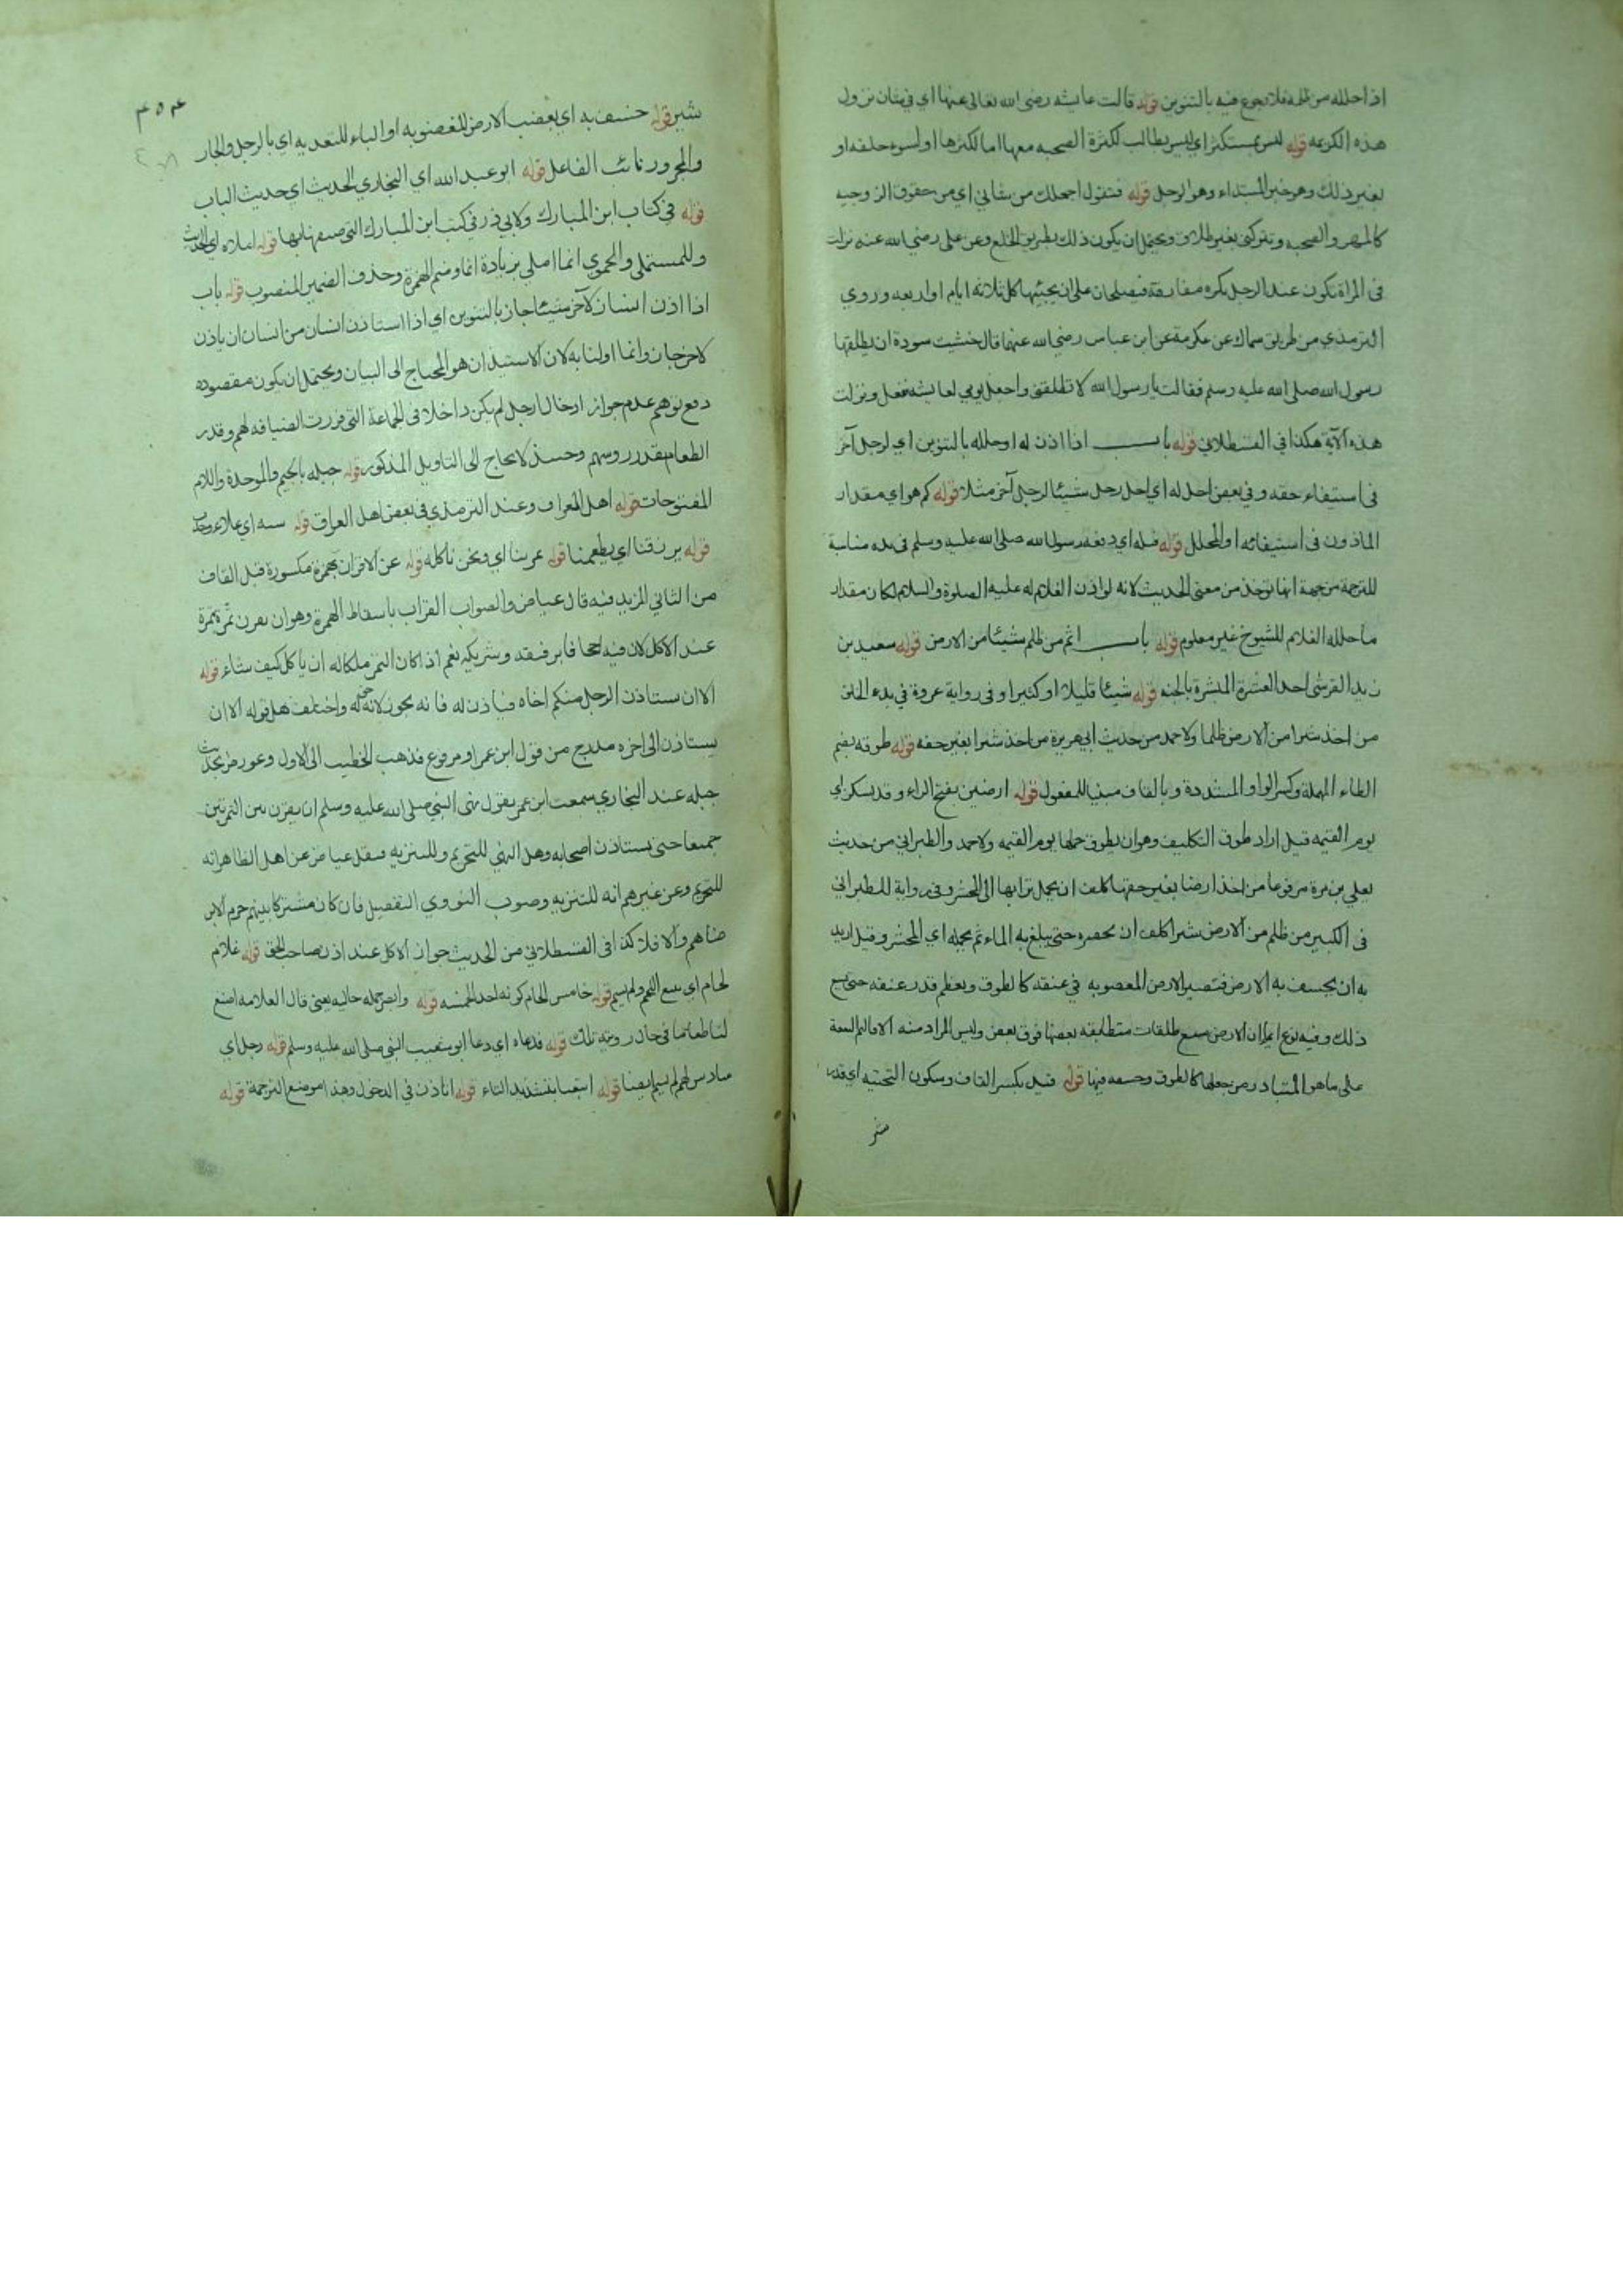 اذا حلله من ظلمه فلا رجوع فيه بالتنوين قوله قالت عايشه رضى الله تعالى عنها اي في شان نزول
هذه الكريمه قوله ليس بمستكثر اي ليس بطالب لكثرة الصحبه معها اما لكبرها او لسوء خلقه او
لغير ذلك وهو خبر المبتداء وهو الرجل قوله فتقول اجعلك من شاني اي من حقوق الزوجيه
كالمهر والصحبه وتتركني بغير طلاق ويحتمل ان يكون ذلك بطريق الخلع وعن على رضي الله عنه نزلت
فى المراة تكون عند الرجل يكره مفارقة فيصطلحان على ان يجيئها كل ثلاثه ايام او اربعه وروي
الترمذي من طريق سماك عن عكرمة عن ابن عباس رضي الله عنهما قال خشيت سودة ان يطلقها
رسول الله صلى الله عليه وسلم فقالت يا رسول الله لا تطلقني واجعل يومي لعايشه ففعل ونزلت
هذه الآية هكذا في القسطلاني قوله باب اذا اذن له او حلله بالتنوين اي لرجل آخر
فى استيفاء حقه وفي بعض احل له اي احل رجل شيئا لرجل آخر مثلا قوله كم هو اي مقدار
الماذون فى استيفائه او المحلل قوله فتله اي دفعه رسول الله صلى الله عليه وسلم فى يده مناسبة
للترجمة من جهة انها توخذ من معنى الحديث لانه لو اذن الغلام له عليه الصلوة والسلام لكان مقدار
ما حلله الغلام للشيوخ غير معلوم قوله باب اثم من ظلم شيئا من الارض قوله سعيد بن
زيد القرشى احد العشرة المبشرة بالجنه قوله شيئا قليلا او كثيرا وفى رواية عروة في بدء الخلق
من اخذ شبرا من الارض ظلما ولاحمد من حديث ابي هريرة من اخذ شبرا بغير حقه قوله طوقه بضم
الطاء المهملة وكسر الواو المشددة وبالقاف مبنيا للمفعول قوله ارضين بفتح الراء وقد يسكن اي
يوم القيمه قيل اراد طوق التكليف وهو ان يطوق حملها يوم القيمه ولاحمد والطبراني من حديث
يعلي بن مرة مرفوعا من اخذ ارضا بغير حقها كلف ان يحمل ترابها الى المحشر وفى رواية للطبراني
فى الكبير من ظلم من الارض شبرا كلف ان يحفره حتى يبلغ به الماء ثم يحمله اي المحشر وقيل اريد
به ان يخسف به الارض فتصير الارض المغصوبه في عنقه كالطوق ويعظم قدر عنقه حتى يسع
ذلك وفيه نوع ان الارض سبع طبقات متطابقه بعضها فوق بعض وليس المراد منه الاقاليم السبعة
على ما هو المتبادر من جعلها كالطوق وخسفه فيها قوله قيد بكسر القاف وسكون التحتيه اي قدر
شبر
٤٥٤
شبر قوله خسف به اي بغضب الارض المغصوبه او الباء للتعديه اي بالرجل والجار
والمجرور نائب الفاعل قوله ابو عبد الله اي البخاري الحديث اي حديث الباب
قوله في كتاب ابن المبارك ولابي ذر في كتب ابن المبارك التي صنفها بها قوله املاه اي الحديث
وللمستملى والحموي انما املي بزيادة انما وضم الهمزة وحذف الضمير المنصوب قوله باب
اذا اذن انسان لآخر شيئا جاز بالتنوين اي اذا استاذن انسان من انسان ان ياذن
لاخر جاز وانما اولنا به لان الاستيذان هو المحتاج الى البيان ويحتمل ان يكون مقصوده
دفع توهم عدم جواز ادخال رجل لم يكن داخلا فى الجماعة التى قررت الضيافه لهم وقدر
الطعام بقدر روسهم وحينئذ لا يحتاج الى التاويل المذكور قوله جبله بالجيم والموحدة واللام
المفتوحات قوله اهل العراق وعند الترمذي في بعض اهل العراق قوله سنه اي غلاء وجدب
قوله يرزقنا اي يطعمنا قوله يمر بنا اي ونحن ناكله قوله عن الاقران بهمزة مكسورة قبل القاف
من الثاني المزيد فيه قال عياض والصواب القران باسقاط الهمزة وهو ان يقرن تمرة بتمرة
عند الاكل لان فيه اجحافا برفيقه وشريكه نعم اذا كان التمر ملكا له ان ياكل كيف شاء قوله
الا ان يستاذن الرجل منكم اخاه فياذن له فانه يجوز لانه حقه واختلف هل قوله الا ان
يستاذن الى اخره مدرج من قول ابن عمر او مرفوع فذهب الخطيب الى الاول وعورض بحديث
جبله عند البخاري سمعت ابن عمر يقول نهى النبي صلى الله عليه وسلم ان يقرن بين التمرتين
جميعا حتى يستاذن اصحابه وهل النهي للتحريم وللتنزيه فنقل عياض عن اهل الظاهر انه
للتحريم وعن غيرهم انه للتنزيه وصوب النووي التفصيل فان كان مشتركا بينهم حرم الا برضاهم
والا فلا كذا فى القسطلاني من الحديث جواز الاكل عند اذن صاحب الحق قوله غلام
لحام اي يبيع اللحم ولم يسم قوله خامس الحام كونه احد الخمسه قوله وابصر جمله حاليه يعني قال العلامه اصنع
لنا طعاما في حال رويته تلك قوله فدعاه اي دعا ابو شعيب النبي صلى الله عليه وسلم قوله رجل اي
سادس لهم لم يسم ايضا قوله اتبعنا بتشديد التاء قوله اتاذن في الدخول وهذا موضع الترجمة قوله